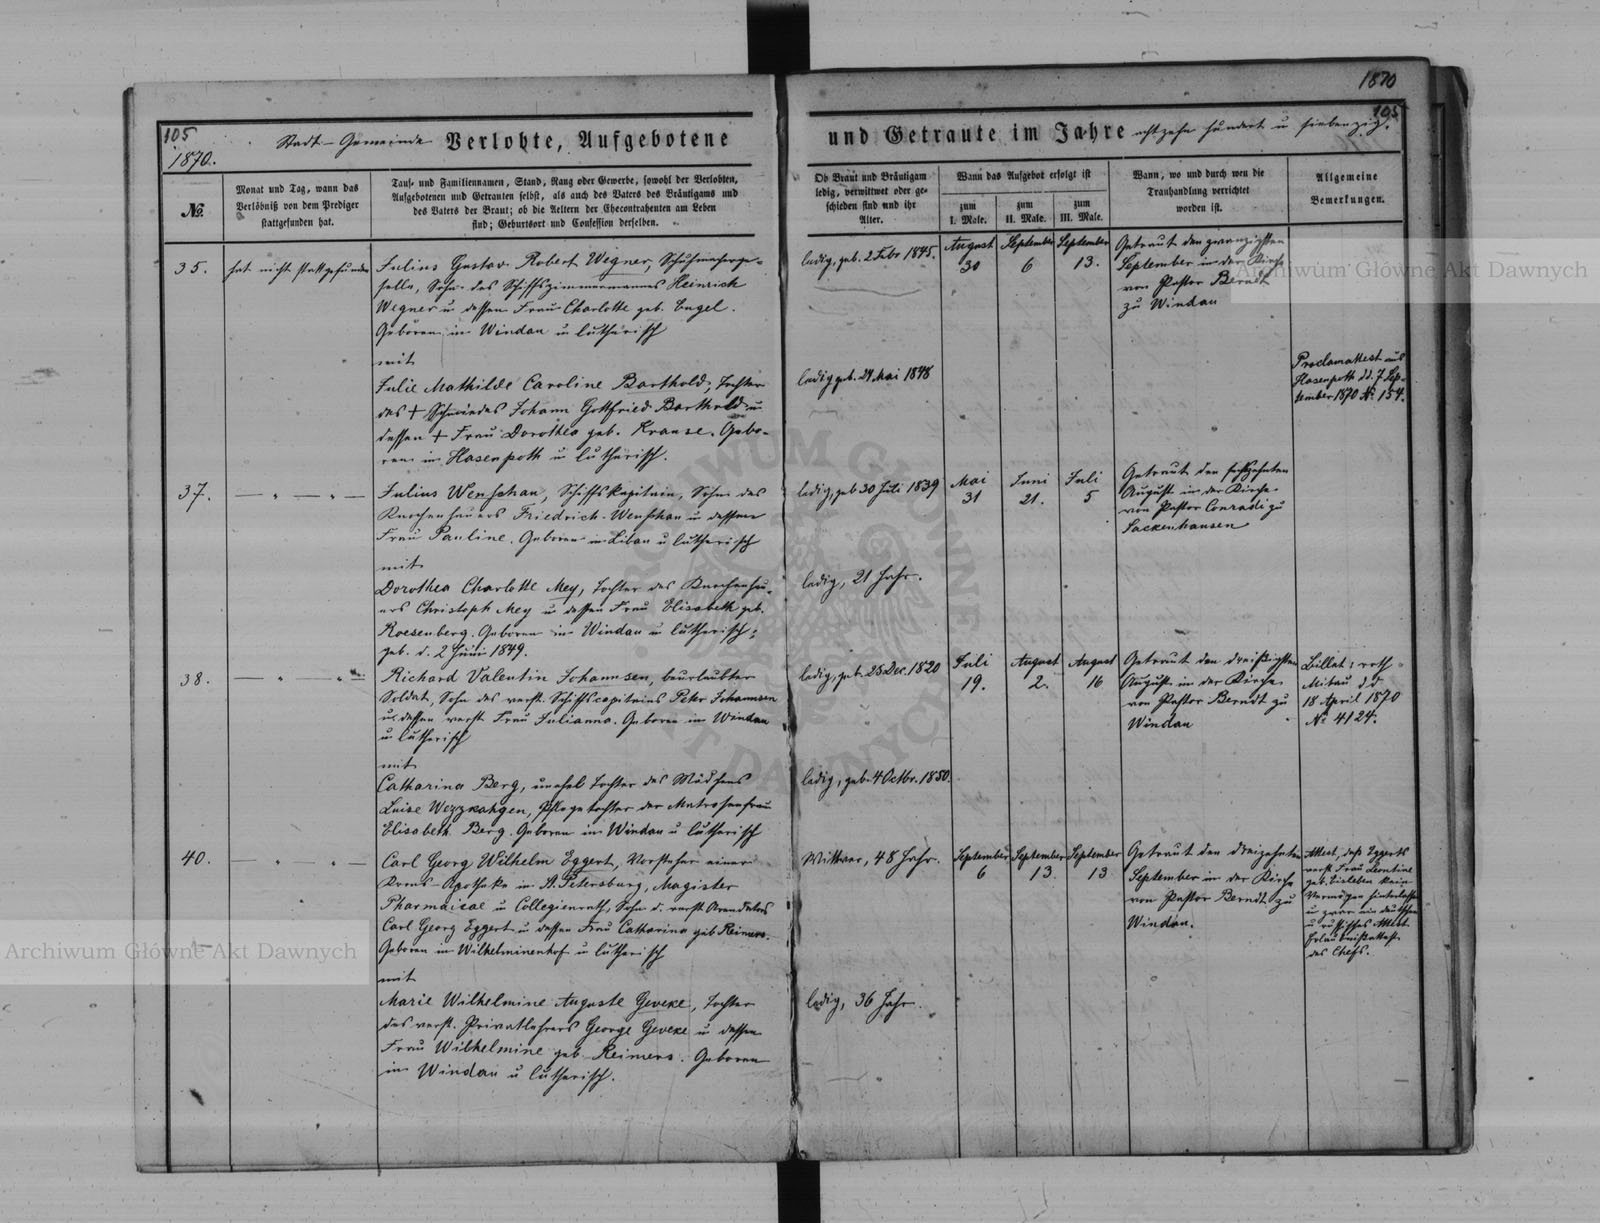 1870
105
1870.
Stadt-Gemeinde Verlobte, Aufgebotene
No.
Monat und Tag, wann das
Verlöbniß von dem Prediger
stattgefunden hat.
Tauf- und Familiennamen, Stand, Rang oder Gewerbe, sowohl der Verlobten,
Aufgebotenen und Getrauten selbst, als auch des Vaters des Bräutigams und
des Vaters der Braut; ob die Aeltern der Ehecontrahenten am Leben
sind; Geburtsort und Confession derselben.
35. hat nicht stattgefunden
Julius Gustav Robert Wegner, Schuhmacherge-
selle, Sohn des Schiffszimmermannes Heinrich
Wegner u dessen Frau Charlotte geb. Engel.
Geboren in Windau u lutherisch
mit
Julie Mathilde Caroline Barthold, Tochter
des + Johann Gottfried Barthold u
dessen + Frau Dorothea geb. Krause. Gebo-
ren in Hasenpoth u lutherisch.
37. — " — " —
Julius Wenschau, Schiffskapitain, Sohn des
Knochenhauers Friedrich Wenschau u dessen
Frau Pauline. Geboren in Libau u lutherisch
mit
Dorothea Charlotte Mey, Tochter des Knochenhau-
ers Christoph Mey u dessen Frau Elisabeth geb.
Roesenberg. Geboren in Windau u lutherisch;
geb. d. 2 Juni 1849.
38. — " — " —
Richard Valentin Johannsen, beurlaubter
Soldat, Sohn des verst. Schiffscapitains Peter Johannsen
u dessen verst. Frau Julianna. Geboren in Windau
u lutherisch
mit
Catharina Berg, unehel Tochter des Mädchens
Luise Pflegetochter der Matrosenfrau
Elisabeth Berg. Geboren in Windau u lutherisch
40. — " — " —
Carl Georg Wilhelm Eggert, Vorsteher einer
Krons-Apotheke in St. Petersburg, Magister
Pharmaciae u Collegienrath, Sohn d. verst Arendators
Carl Georg Eggert u dessen Frau Catharina geb Reimers.
Geboren in Wilhelminenhof u lutherisch
mit
Marie Wilhelmine Auguste Geveke, Tochter
des verst. Privatlehrers George Geveke u dessen
Frau Wilhelmine geb Reimers. Geboren
in Windau u lutherisch.
105
und Getraute im Jahre achtzehn hundert u siebenzig.
Ob Braut und Bräutigam
ledig, verwittwet oder ge-
schieden sind und ihr
Alter.
Wann das Aufgebot erfolgt ist
zum
I. Male.
zum
II. Male.
zum
III. Male.
Wann, wo und durch wen die
Trauhandlung verrichtet
worden ist.
Allgemeine
Bemerkungen.
ledig, geb. 2 Febr 1845.
August
30
September
6
September
13.
Getraut den zwanzigsten
September in der Kirche
von Pastor Berndt
zu Windau
ledig geb. 24 Mai 1848
Proclamattest aus
Hasenpoth d.d. 7 Sep-
tember 1870 № 154.
ledig, geb 30 Juli 1839
Mai
31
Juni
21.
Juli
5
Getraut den
August in der Kirche
von Pastor Conradi zu
Sackenhausen
ledig, 21 Jahr.
ledig, geb. 25 Dec. 1820
Juli
19.
August
2.
August
16
Getraut den dreißigsten
August in der Kirche
von Pastor Berndt zu
Windau
Billet: roth
Mitau d d
18 April 1870
№ 4124.
ledig, geb. 4 Octbr. 1850.
Wittwer, 48 Jahr.
September
6
September
13
September
13
Getraut den dreizehnten
September in der Kirche
von Pastor Berndt zu
Windau.
Attest, daß Eggerts
verst Frau Leontine
geb. kein
Vermögen hinterlassen
u zwar ein deutsches
u russisches Attest.
Erlaubnißattest
des Chefs.
ledig, 36 Jahr.
Archiwum Główne Akt Dawnych
Archiwum Główne Akt Dawnych
ARCHIWUM GŁÓWNE AKT DAWNYCH